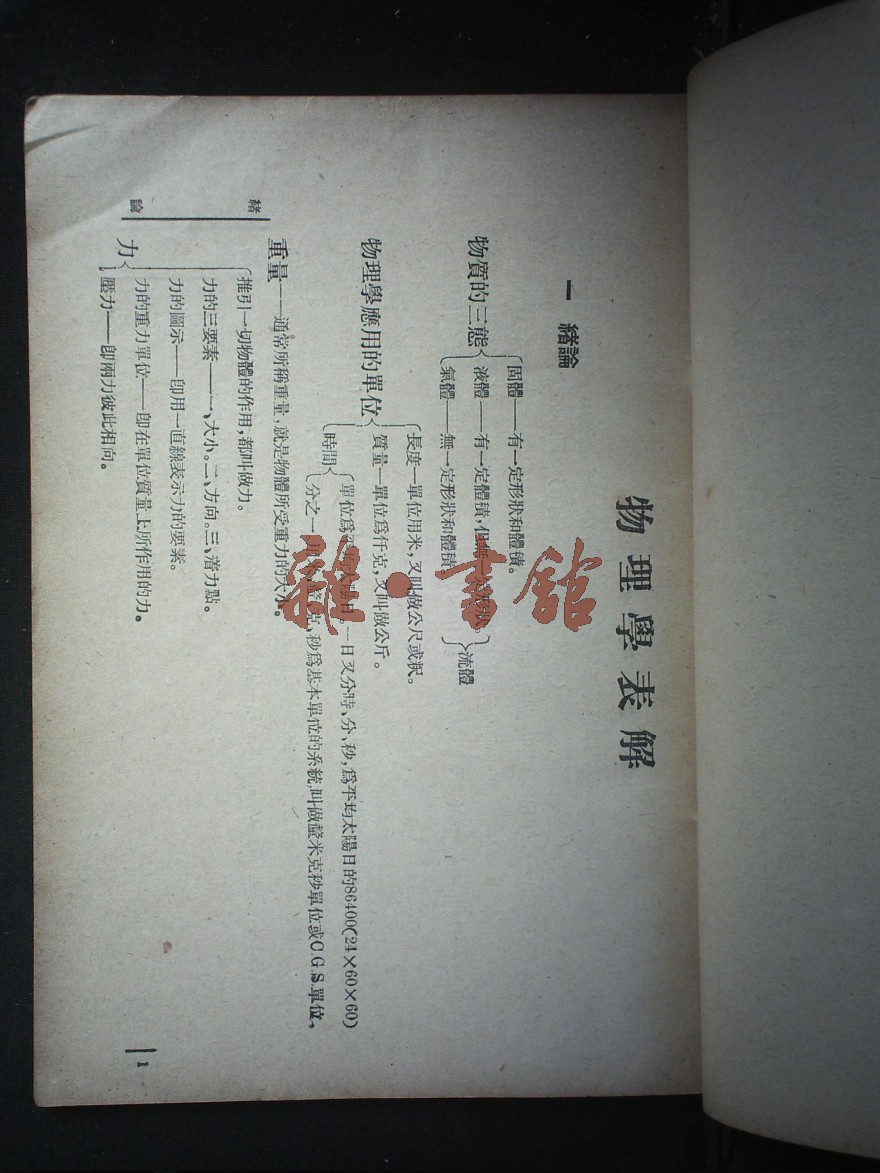 物理學表解
一 緒論
物質的三態
固體——有一定形狀和體積。
液體——有一定體積,但無一定形狀。
氣體——無一定形狀和體積
流體
物理學應用的單位
長度—單位用米,又叫做公尺或粎。
質量—單位爲仟克,又叫做公斤。
時間
單位爲平均太陽日。一日又分時、分、秒,爲平均太陽日的86400(24×60×60)
分之一 克、秒爲基本單位的系統,叫做釐米克秒單位或C.G.S.單位、
重量——通常所稱重量,就是物體所受重力的大小。
力
推引一切物體的作用,都叫做力。
力的三要素——一、大小。二、方向。三、着力點。
力的圖示——卽用一直線表示力的要素。
力的重力單位——卽在單位質量上所作用的力。
壓力——卽兩力彼此相向。
緒論
1
雜·書館